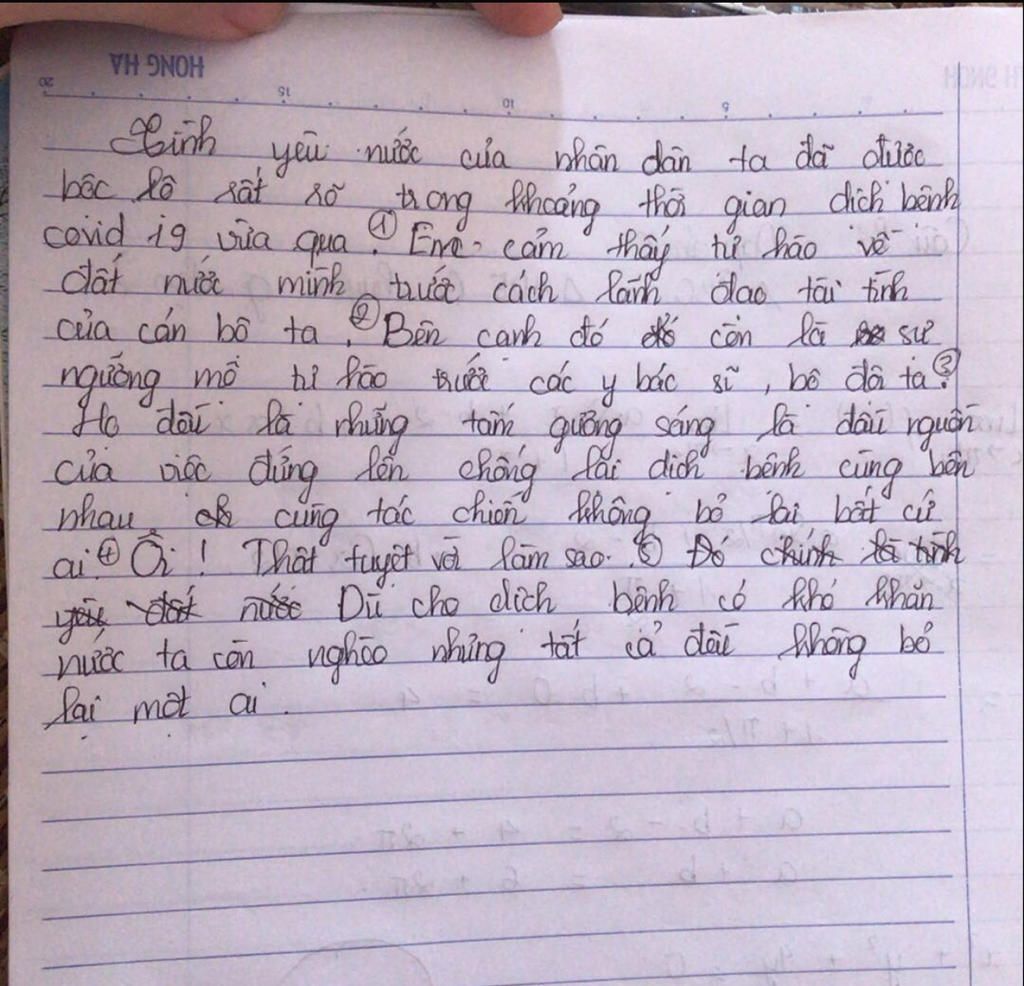 HONG HA
20 15 10 5
Tình yêu nước của nhân dân ta đã được
bộc lộ rất rõ trong khoảng thời gian dịch bệnh
covid 19 vừa qua.① Em cảm thấy tự hào về
đất nước mình trước cách lãnh đạo tài tình
của cán bộ ta.② Bên cạnh đó còn là sự
ngưỡng mộ tự hào trước các y bác sĩ, bộ đội ta.③
Họ đều là những tấm gương sáng là đầu nguồn
của việc đứng lên chống lại dịch bệnh cùng bên
nhau, cùng tác chiến không bỏ lại bất cứ
ai.④ Ôi! Thật tuyệt vời làm sao.⑤ Đó chính là tình
yêu đất nước Dù cho dịch bệnh có khó khăn
nước ta còn nghèo nhưng tất cả đều không bỏ
lại một ai.